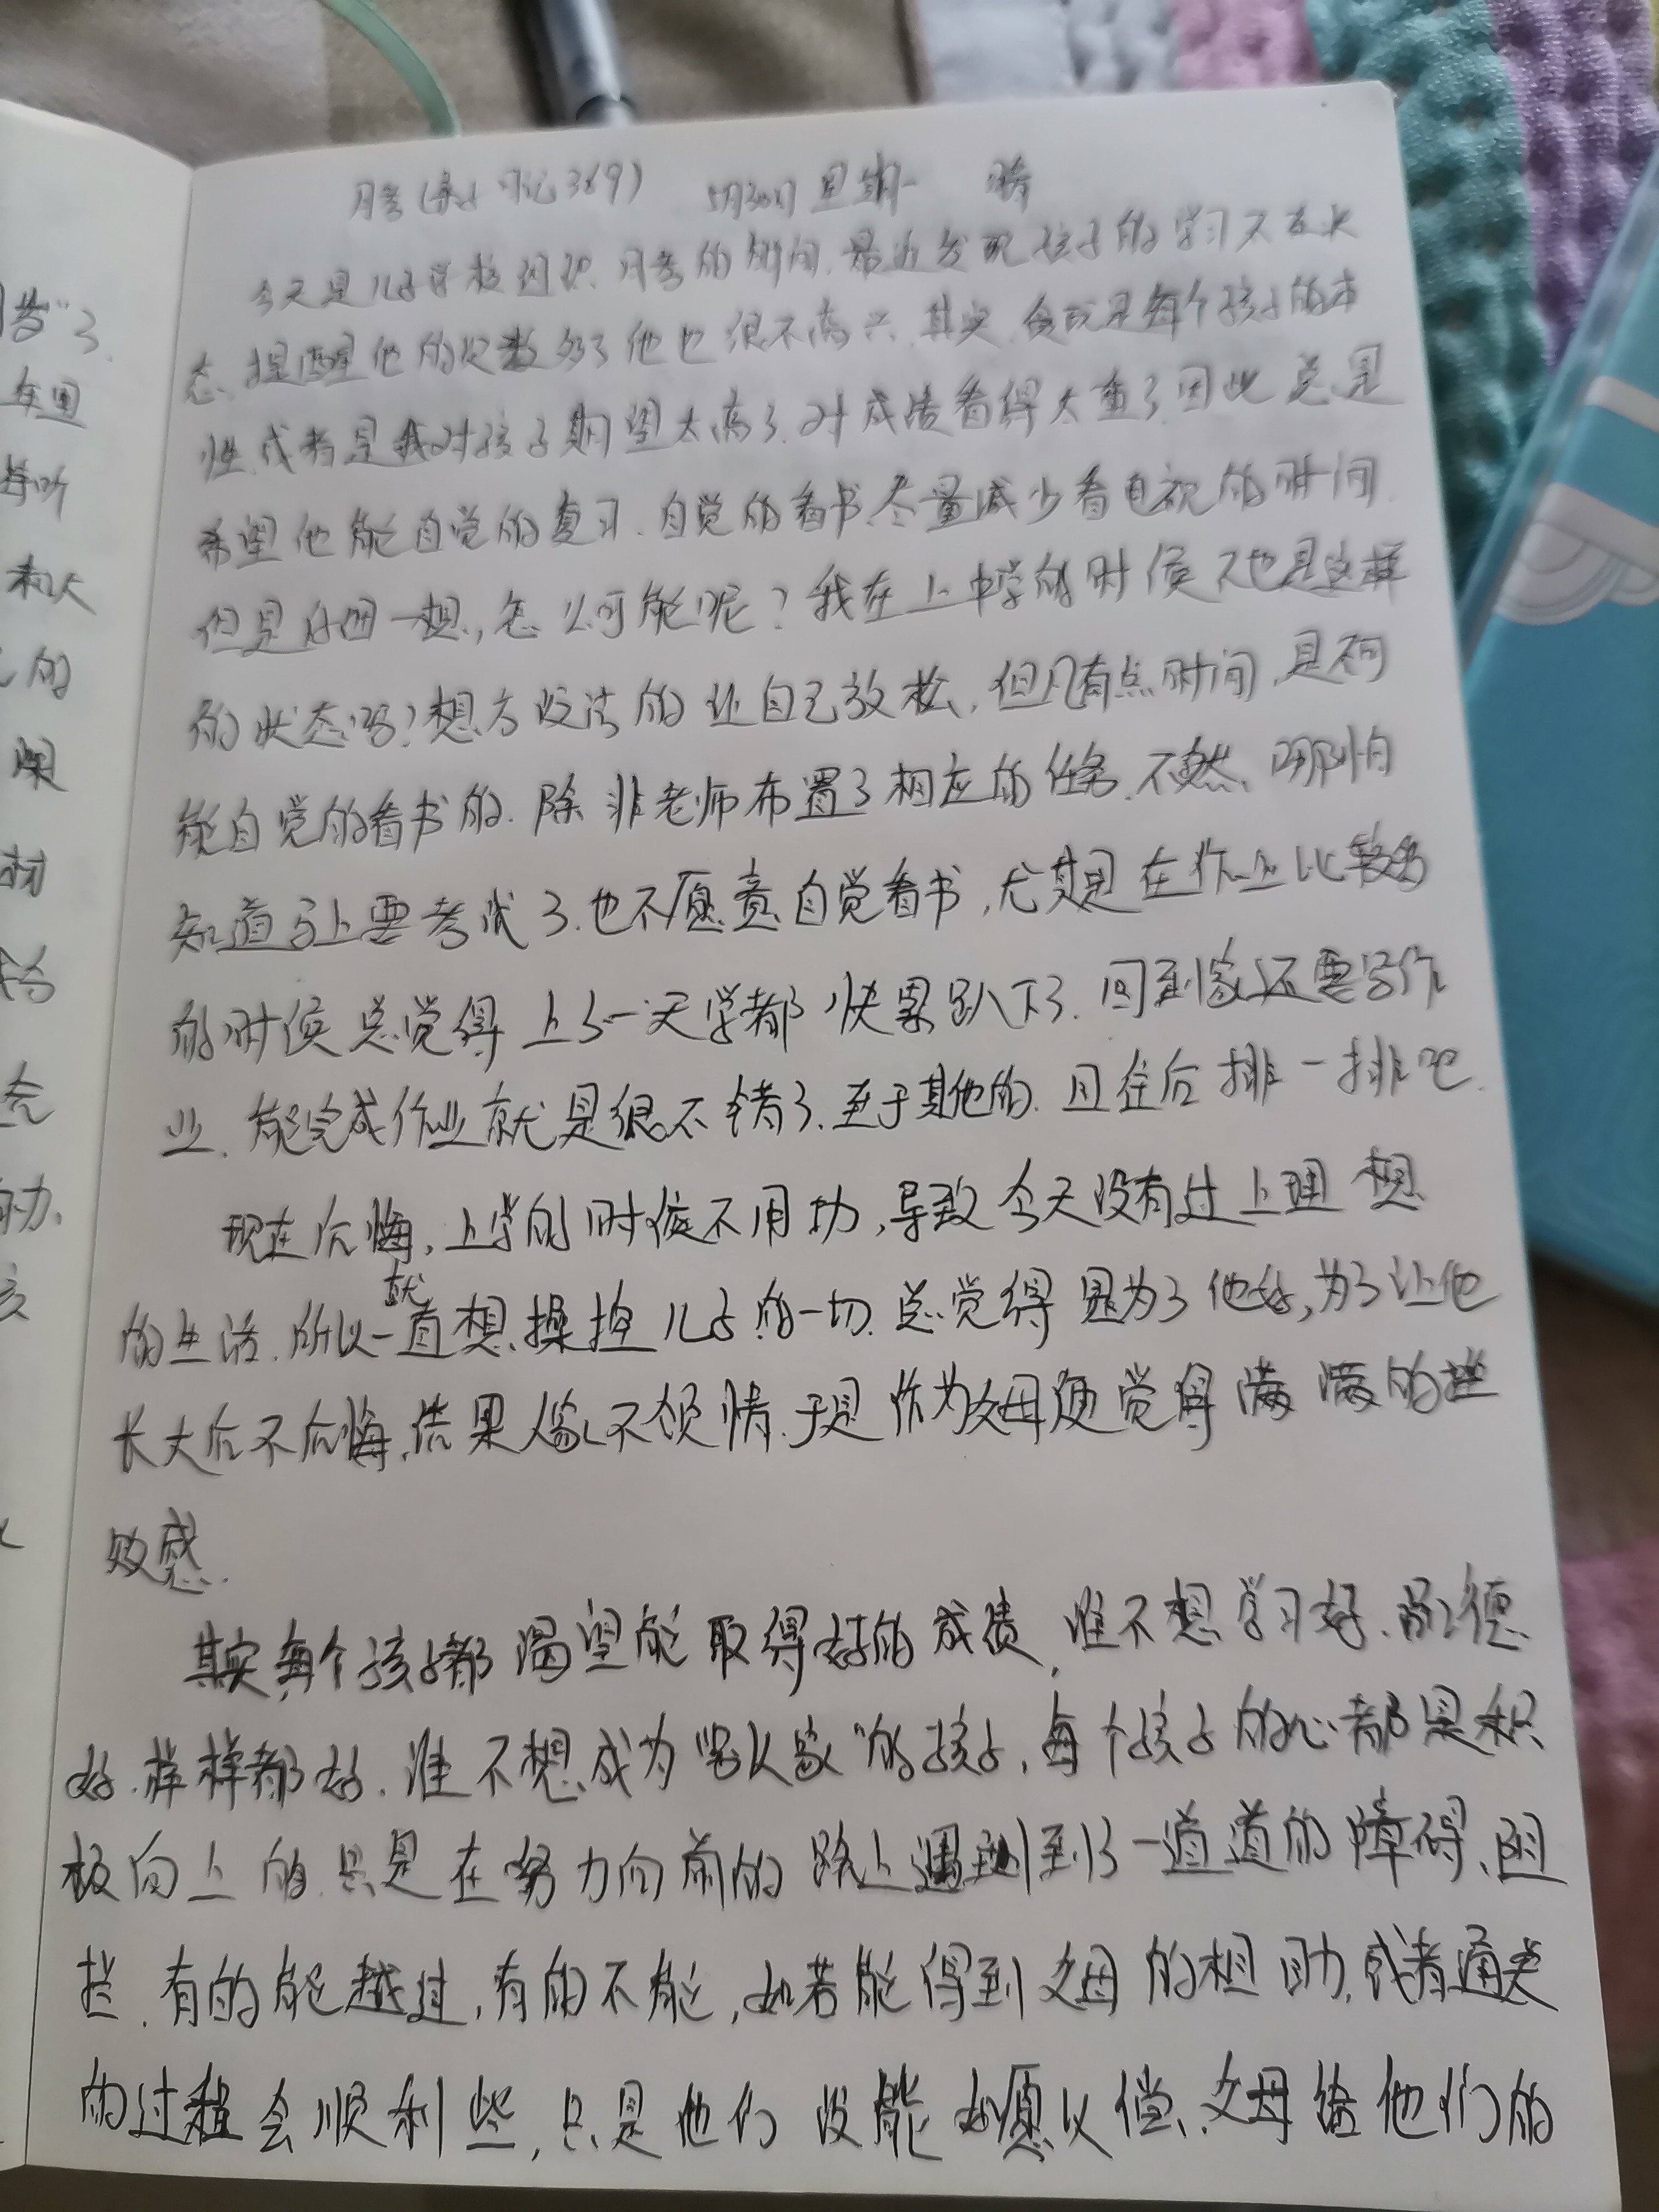 月考(亲子日记369) 5月30日 星期一 晴
今天是儿子学校组织月考的时间.最近发现孩子的学习不在状
态.提醒他的次数多了他也很不高兴.其实,贪玩是每个孩子的本
性.或者是我对孩子期望太高了.对成绩看得太重了.因此总是
希望他能自觉的复习.自觉的看书.尽量减少看电视的时间.
但是反回一想,怎么可能呢?我在上中学的时侯不也是这样
的状态吗?想方设法的让自己放松,但凡有点时间,是不可
能自觉的看书的.除非老师布置了相应的任务.不然、哪怕
知道马上要考试了.也不愿意自觉看书,尤其是在作业比较多
的时侯总觉得上了一天学都快累趴下了.回到家还要写作
业.能完成作业就是很不错了.至于其他的.且往后排一排吧.
现在后悔,上学的时侯不用功,导致今天没有过上理想
的生活.所以就一直想操控儿子的一切.总觉得是为了他好,为了让他
长大后不后悔.结果人家不领情.于是作为父母便觉得满满的挫
败感.
其实每个孩子都渴望能取得好的成绩,谁不想学习好.品德
好.样样都好.谁不想成为"别人家"的孩子,每个孩子的心都是积
极向上的.只是在努力向前的路上遇到了一道道的障碍、阻
拦.有的能越过,有的不能,如若能得到父母的相助,或者通关
的过程会顺利些,只是他们没能如愿以偿.父母给他们的